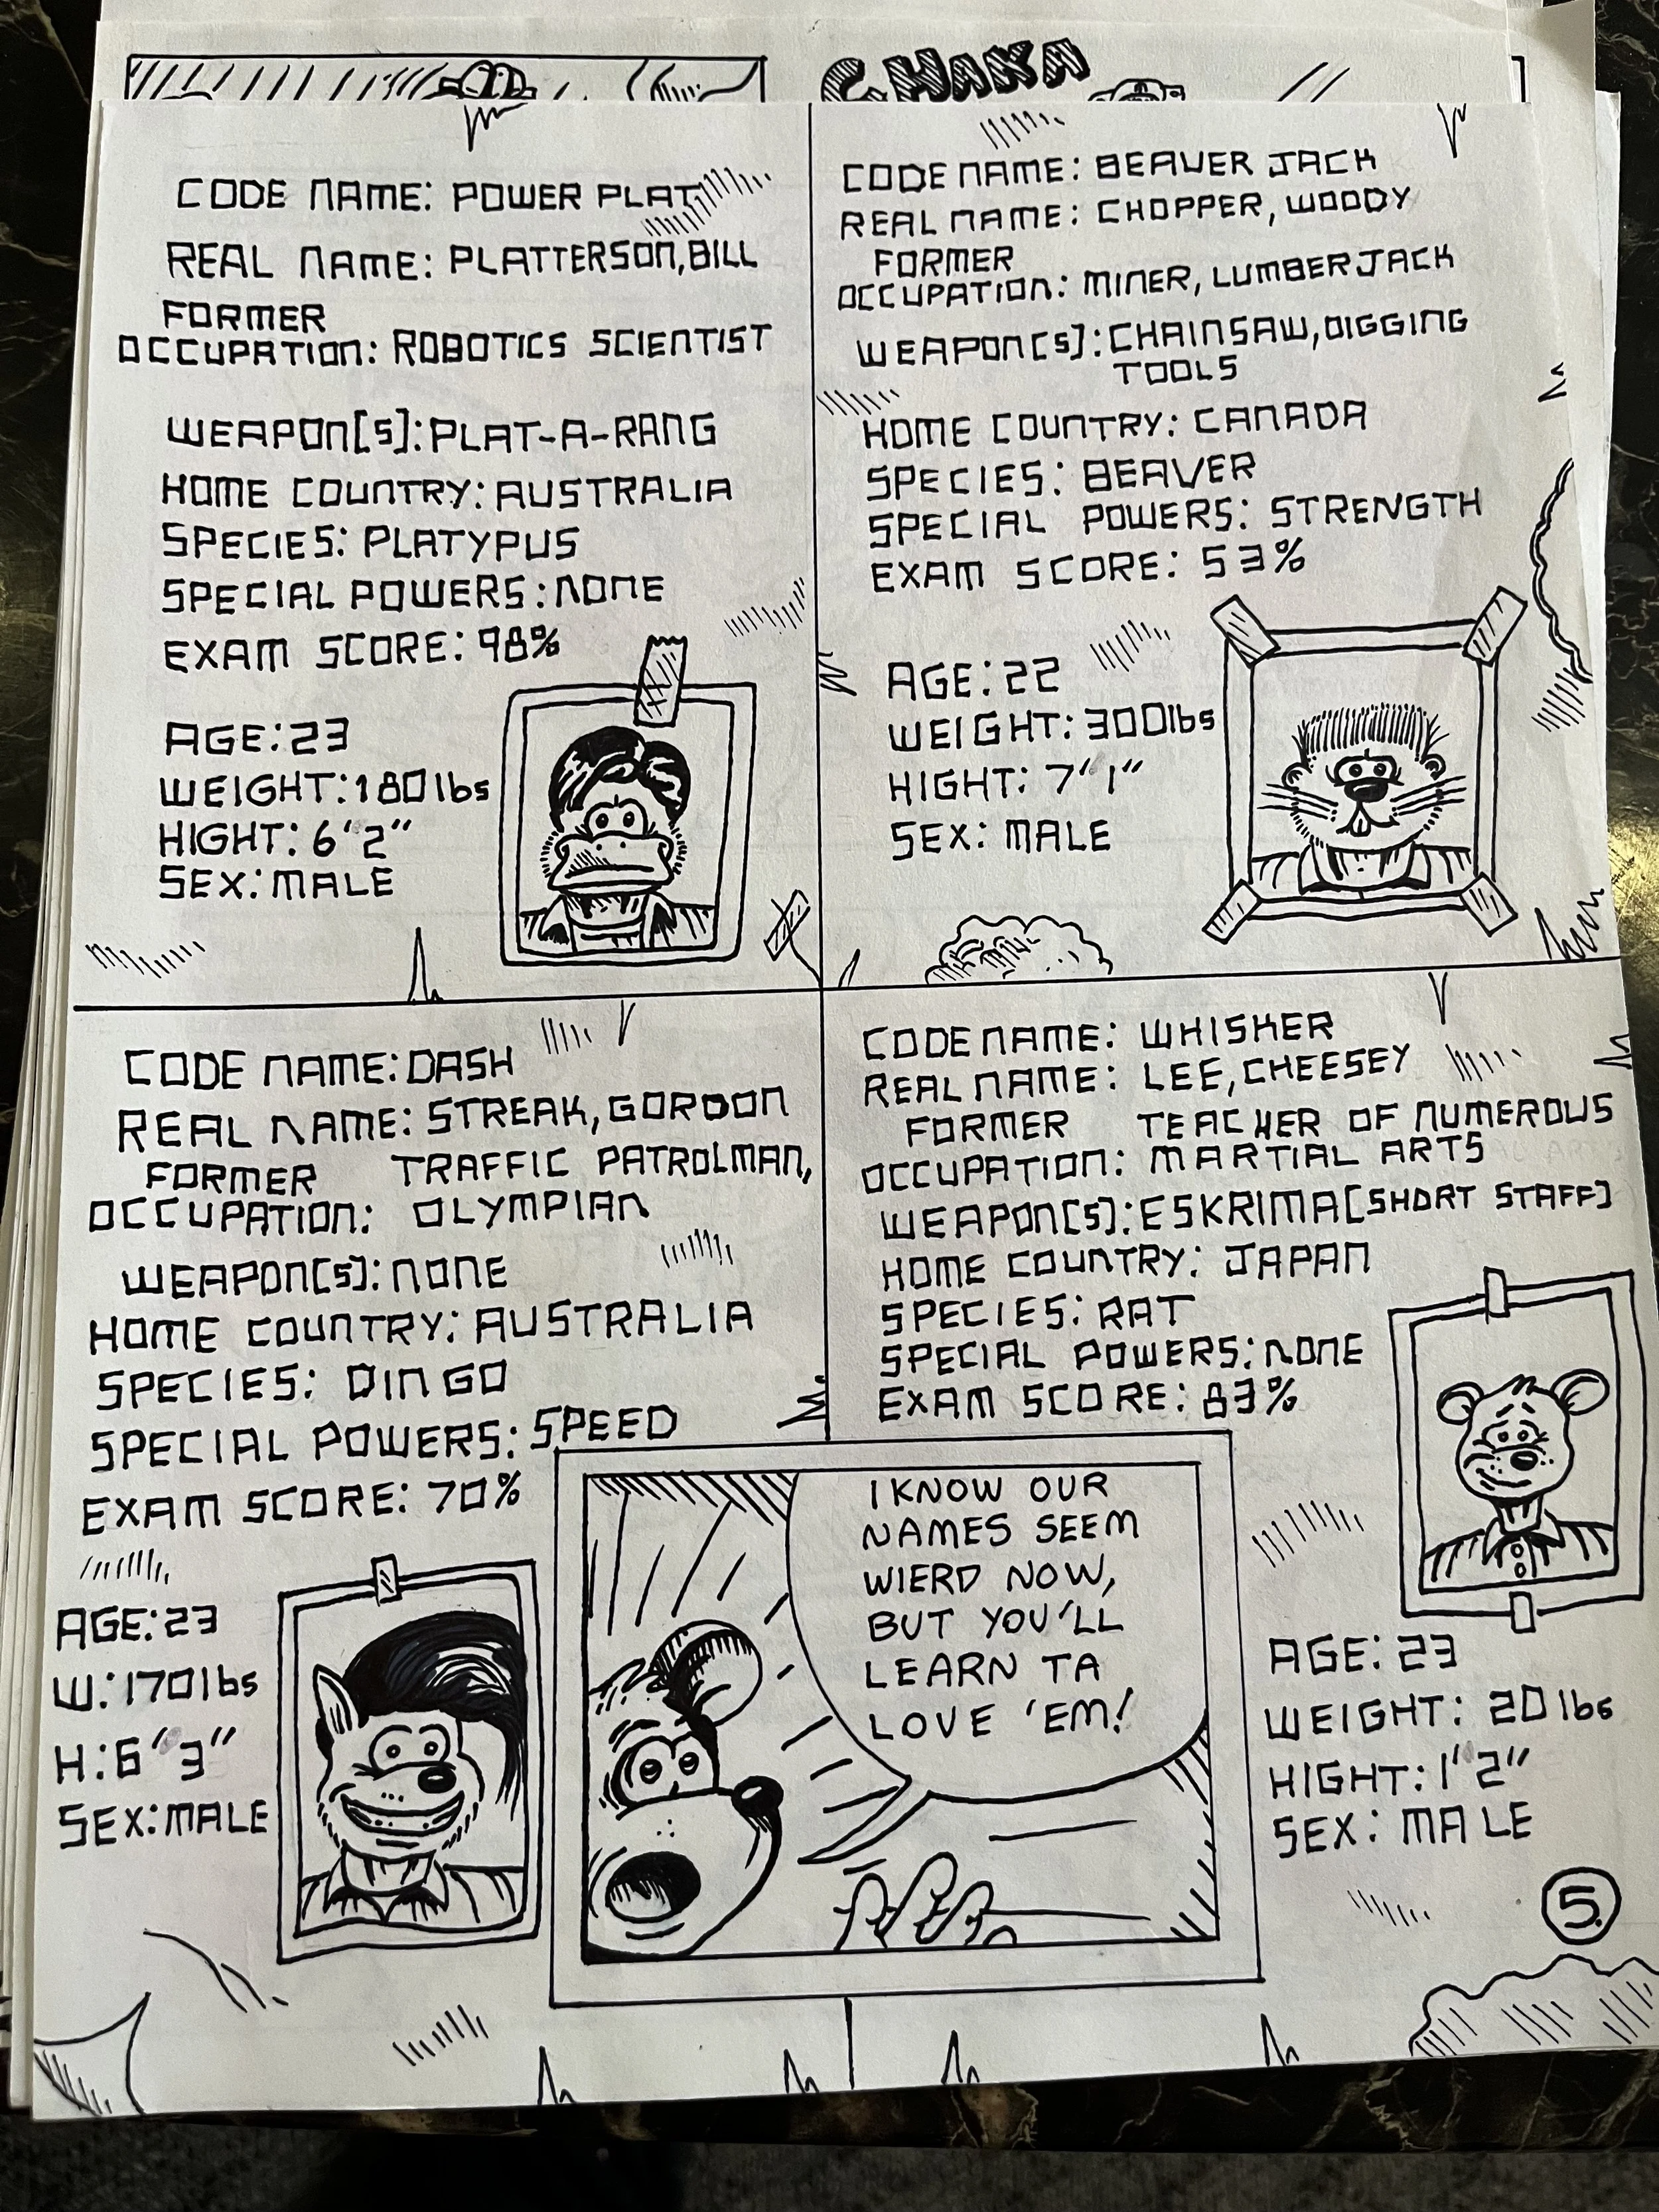 CHAKA
CODE NAME: POWER PLAT
REAL NAME: PLATTERSON, BILL
FORMER
OCCUPATION: ROBOTICS SCIENTIST
WEAPON[S]: PLAT-A-RANG
HOME COUNTRY: AUSTRALIA
SPECIES: PLATYPUS
SPECIAL POWERS: NONE
EXAM SCORE: 98%
AGE: 23
WEIGHT: 180 lbs
HIGHT: 6'2"
SEX: MALE
CODE NAME: BEAVER JACK
REAL NAME: CHOPPER, WOODY
FORMER
OCCUPATION: MINER, LUMBERJACK
WEAPON[S]: CHAINSAW, DIGGING
TOOLS
HOME COUNTRY: CANADA
SPECIES: BEAVER
SPECIAL POWERS: STRENGTH
EXAM SCORE: 53%
AGE: 22
WEIGHT: 300 lbs
HIGHT: 7'1"
SEX: MALE
CODE NAME: DASH
REAL NAME: STREAK, GORDON
FORMER TRAFFIC PATROLMAN,
OCCUPATION: OLYMPIAN
WEAPON[S]: NONE
HOME COUNTRY: AUSTRALIA
SPECIES: DINGO
SPECIAL POWERS: SPEED
EXAM SCORE: 70%
AGE: 23
W: 170 lbs
H: 6'3"
SEX: MALE
CODE NAME: WHISKER
REAL NAME: LEE, CHEESEY
FORMER TEACHER OF NUMEROUS
OCCUPATION: MARTIAL ARTS
WEAPON[S]: ESKRIMA [SHORT STAFF]
HOME COUNTRY: JAPAN
SPECIES: RAT
SPECIAL POWERS: NONE
EXAM SCORE: 83%
AGE: 23
WEIGHT: 20 lbs
HIGHT: 1'2"
SEX: MALE
I KNOW OUR
NAMES SEEM
WIERD NOW,
BUT YOU'LL
LEARN TA
LOVE 'EM!
5.